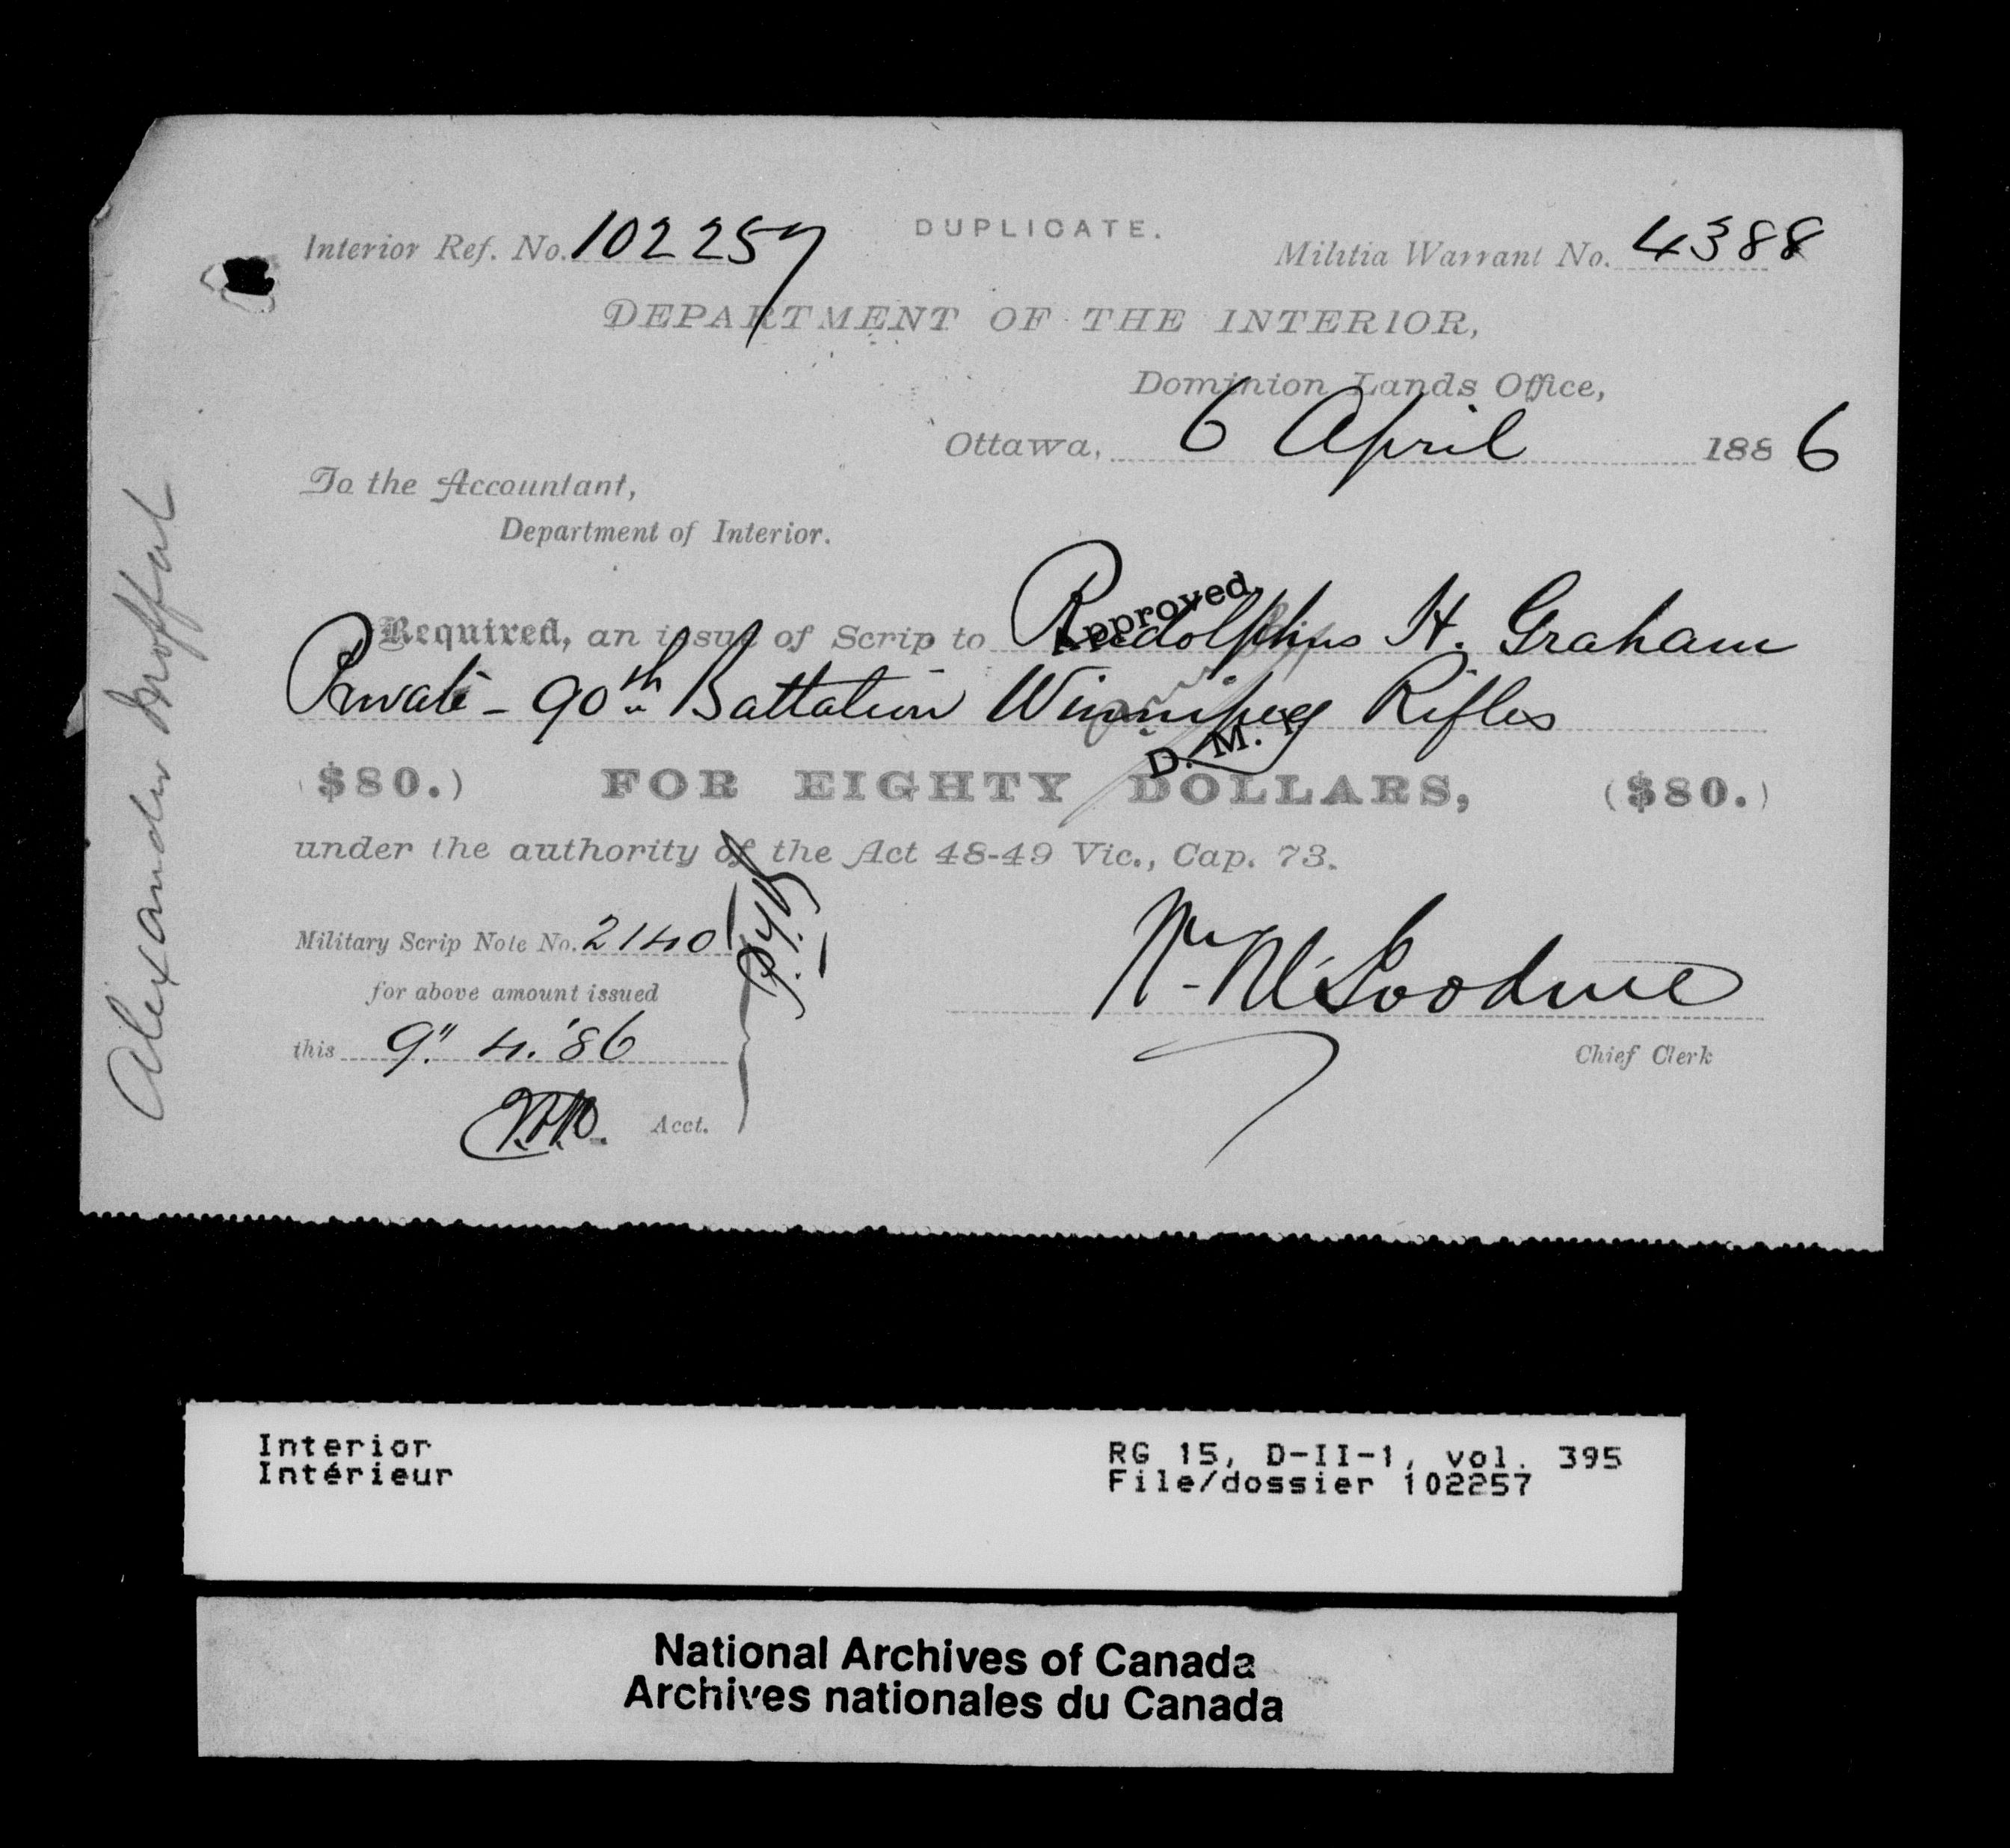 Interior Ref. No. 102257
DUPLICATE.
Militia Warrant No. 4388
DEPARTMENT OF THE INTERIOR,
Dominion Lands Office,
Ottawa, 6 April 1886
To the Accountant,
Department of Interior.
Required, an issue of Scrip to Rudolphus H. Graham
Approved
Private - 90th Battalion Winnipeg Rifles
D. M.
($80.) FOR EIGHTY DOLLARS, ($80.)
under the authority of the Act 48-49 Vic., Cap. 73.
Military Scrip Note No. 2140
for above amount issued
this 9" 4. '86
Acct.
Chief Clerk
Alexander Moffat
Interior
Intérieur
RG 15, D-II-1, vol. 395
File/dossier 102257
National Archives of Canada
Archives nationales du Canada